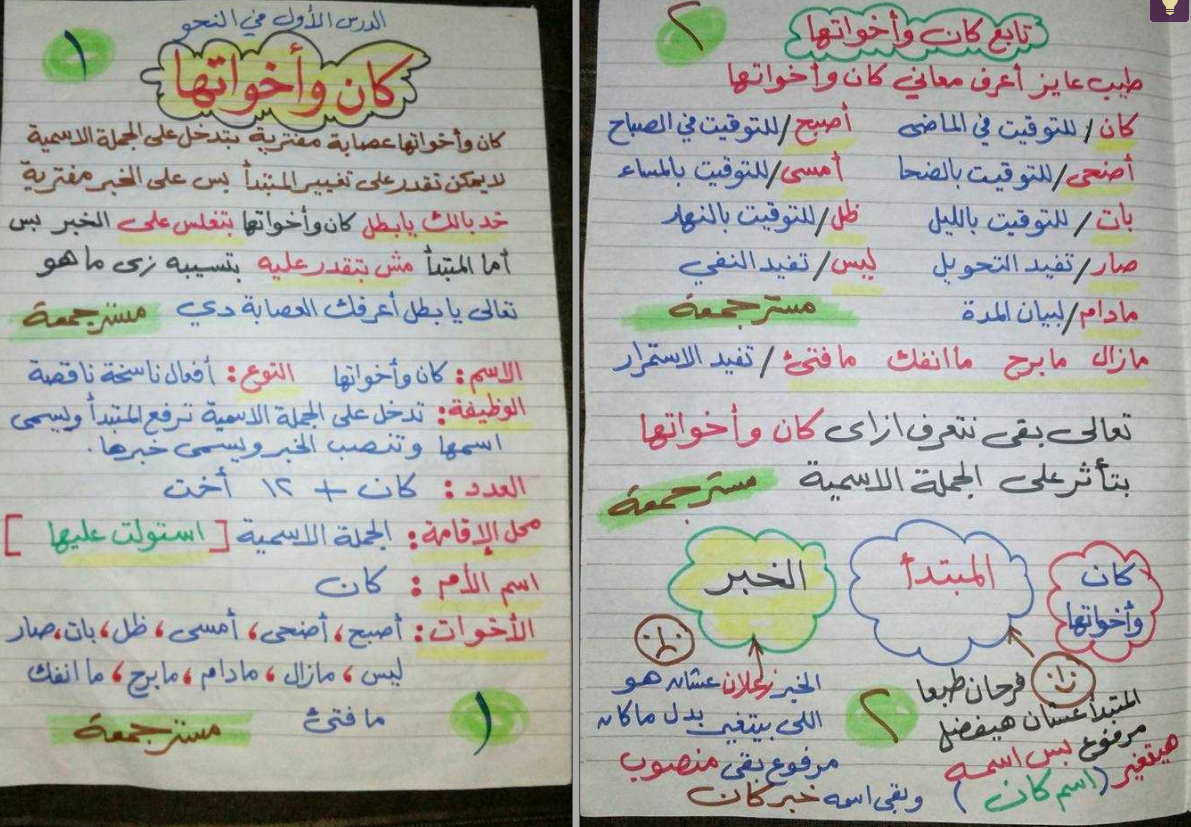 الدرس الأول في النحو
١
كان وأخواتها
كان وأخواتها عصابة مفترية بتدخل على الجملة الاسمية
لا يمكن تقدر على تغيير المبتدأ بس على الخبر مفترية
خد بالك يا بطل كان وأخواتها بتغلس على الخبر بس
أما المبتدأ مش بتقدر عليه بتسيبه زى ما هو
تعالى يا بطل أعرفك العصابة دي مستر جمعة
الاسم: كان وأخواتها النوع: أفعال ناسخة ناقصة
الوظيفة: تدخل على الجملة الاسمية ترفع المبتدأ ويسمى
اسمها وتنصب الخبر ويسمى خبرها.
العدد: كان + ١٢ أخت
محل الإقامة: الجملة الاسمية [استولت عليها]
اسم الأم: كان
الأخوات: أصبح، أضحى، أمسى، ظل، بات، صار
ليس، مازال، مادام، مابرح، ما انفك
ما فتئ
مستر جمعة
١
٢
تابع كان وأخواتها
طيب عايز أعرف معاني كان وأخواتها
كان / للتوقيت في الماضى أصبح / للتوقيت في الصباح
أضحى / للتوقيت بالضحا أمسى / للتوقيت بالمساء
بات / للتوقيت بالليل ظل / للتوقيت بالنهار
صار / تفيد التحويل ليس / تفيد النفي
مادام / لبيان المدة مستر جمعة
مازال مابرح ما انفك ما فتئ / تفيد الاستمرار
تعالى بقى نتعرف ازاى كان وأخواتها
بتأثر على الجملة الاسمية مستر جمعة
كان وأخواتها
المبتدأ
الخبر
فرحان طبعا
المبتدأ عشان هيفضل
مرفوع بس اسمه
هيتغير (اسم كان)
٢
الخبر زعلان عشان هو
اللى بيتغير بدل ما كان
مرفوع بقى منصوب
وبقى اسمه خبر كان